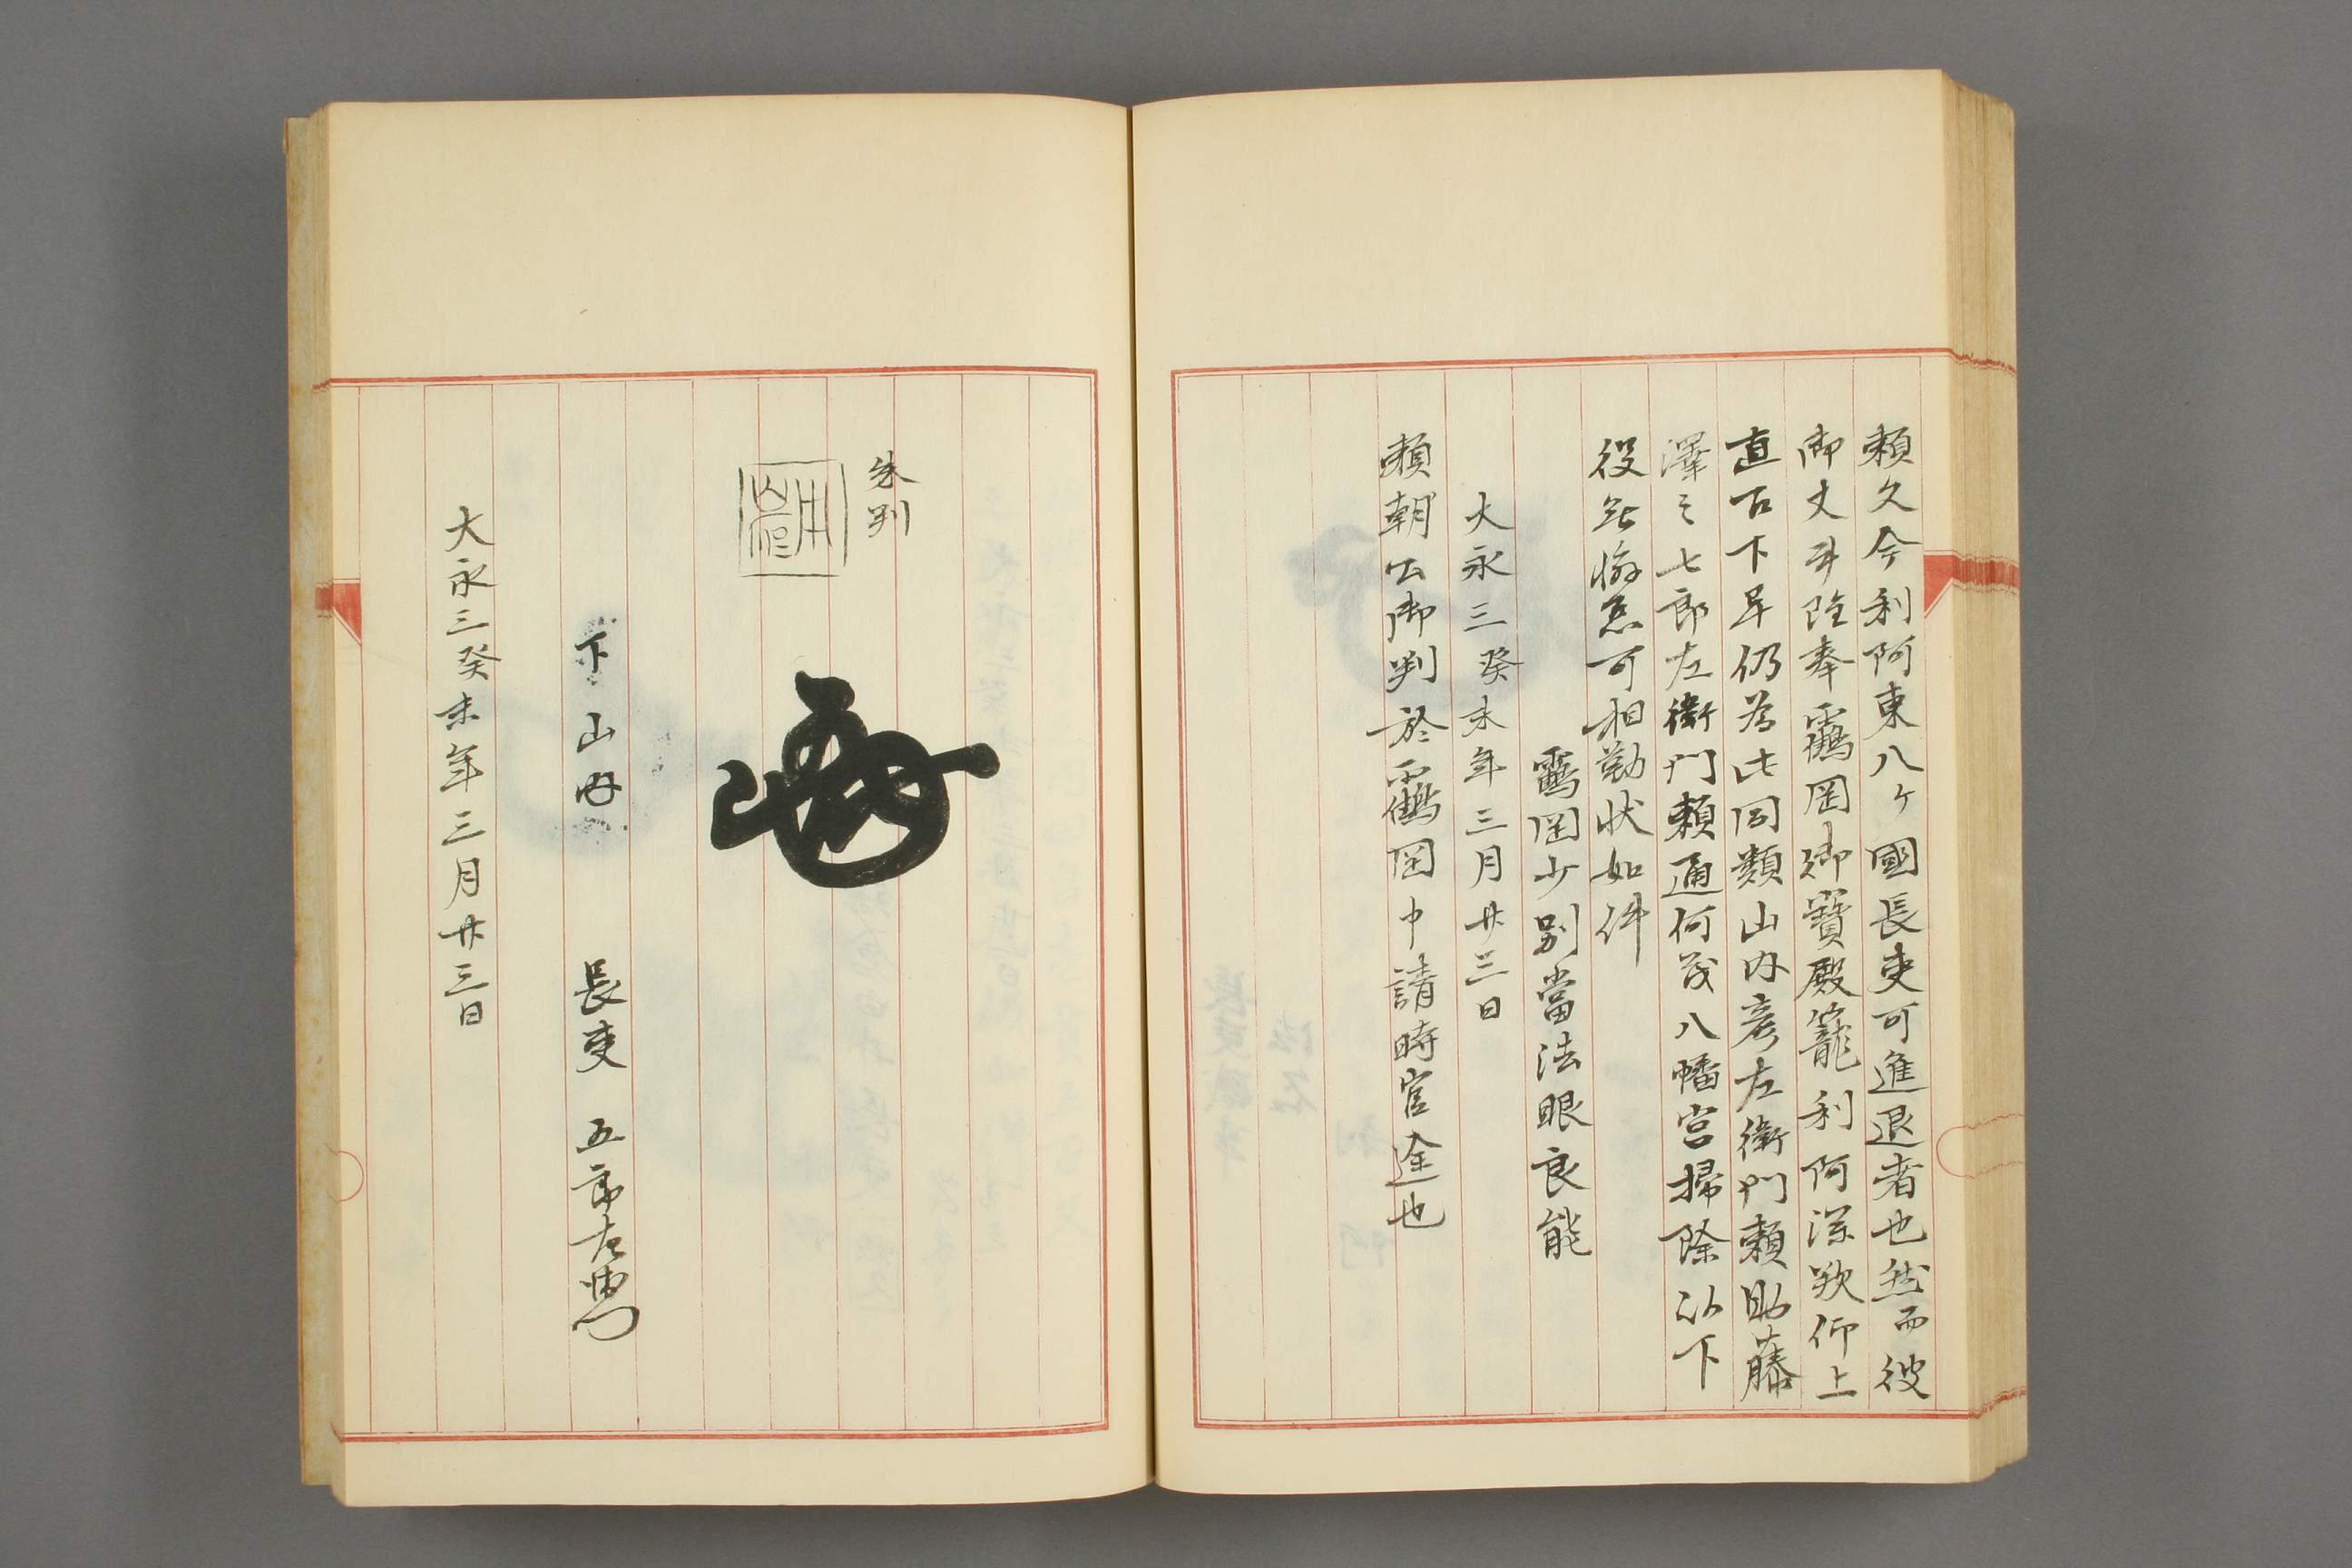 頼久今利阿東八ヶ國長吏可進退者也然而彼
御丈平隂奉靏岡御寳殿籠利阿深歎仰上
直古下畢仍為比同類山内彦左衛門頼助藤
澤之七郎左衛門頼通何茂八幡宮掃除以下
役無懈怠可相勤状如件
靏岡少別當法眼良能
大永三癸未年三月廿三日
頼朝公御判於靏岡中請時官途也
朱判
山内 長吏 五郎左衛門
大永三癸未年三月廿三日